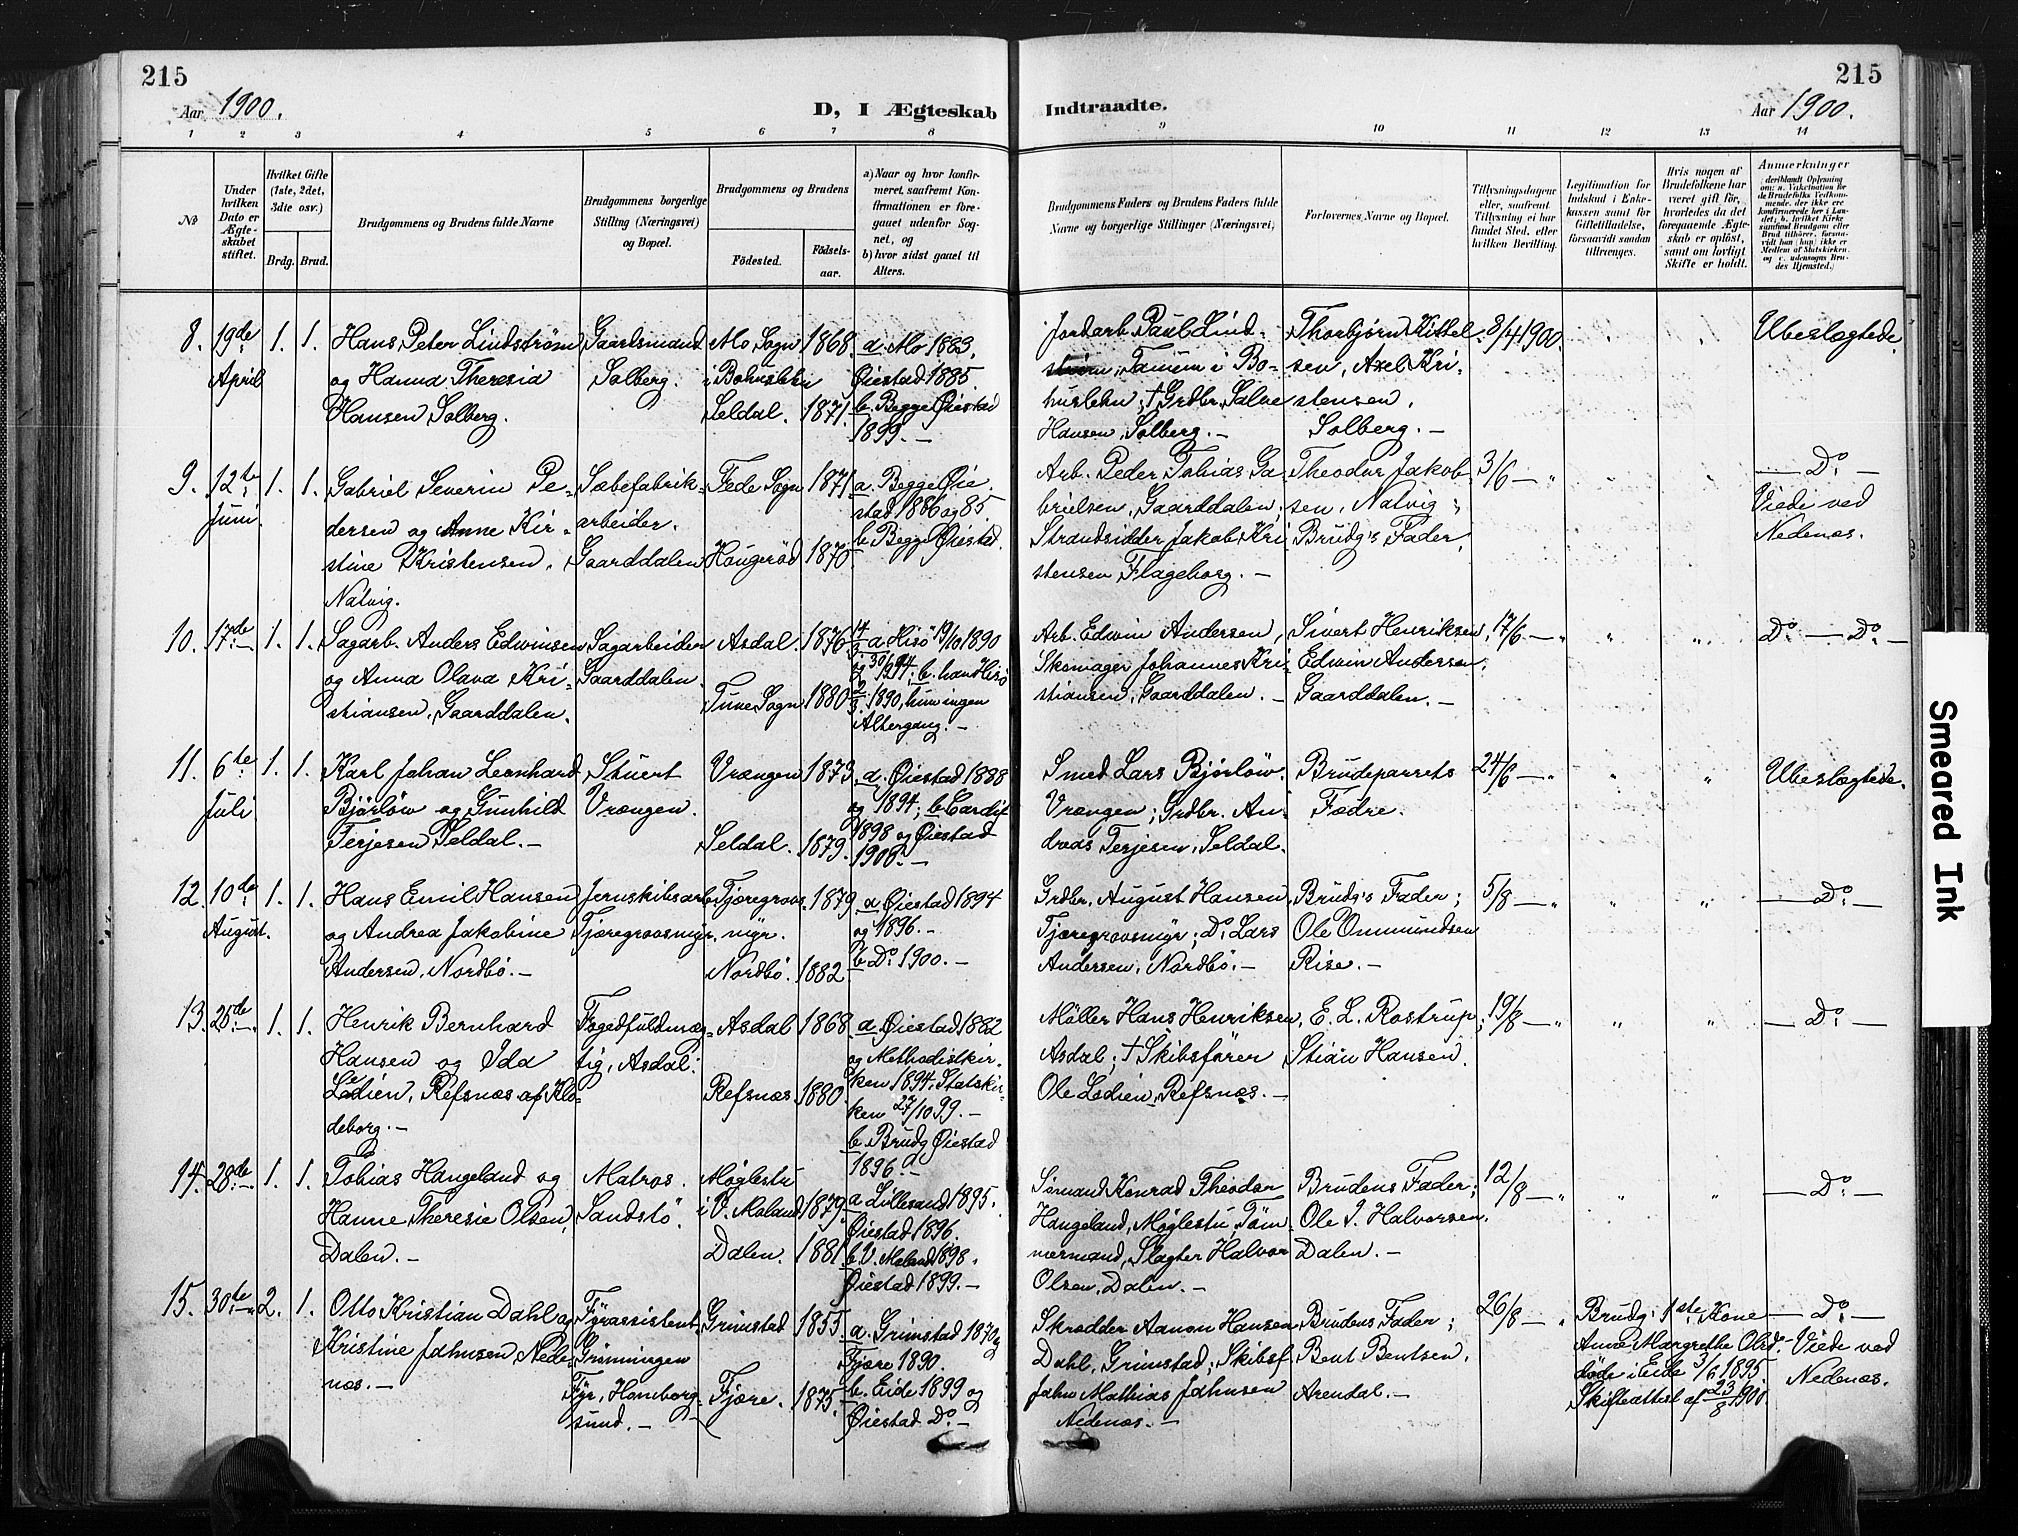 215
215
Aar 1900.
D, I Ægteskab
Indtraadte.
Aar 1900.
1 2 3 4 5 6 7 8 9 10 11 12 13 14
№
Under hvilken Dato er Ægteskabet stiftet.
Hvilket Gifte (1ste, 2det, 3die osv.)
Brdg. Brud.
Brudgommens og Brudens fulde Navne
Brudgommens borgerlige Stilling (Næringsvei) og Bopæl.
Brudgommens og Brudens
Fødested.
Fødselsaar.
a) Naar og hvor konfirmeret, saafremt Konfirmationen er foregaaet udenfor Sognet, og
b) hvor sidst gaaet til Alters.
Brudgommens Faders og Brudens Faders fulde Navne og borgerlige Stillinger (Næringsvei)
Forlovernes Navne og Bopæl.
Tillysningsdagene eller, saafremt Tillysning ei har fundet Sted, efter hvilken Bevilling.
Legitimation for Indskud i Enkekassen samt for Giftetilladelse, forsaavidt saadan tiltrænges.
Hvis nogen af Brudefolkene har været gift før, hvorledes da det foregaaende Ægteskab er opløst, samt om lovligt Skifte er holdt.
Anmerkninger
8. 19de April 1. 1. Hans Peter Lindstrøm Gaardsmand Mo Sogn 1868. a. Mo 1883.
og Hanna Theresia Solberg. i Bohuslehn Øiestad 1885.
Hansen Solberg. Seldal. 1871. b. Begge Øiestad 1899. —
Jordarb. Paul Lind- Thorbjørn Kittel- 8/4 1900. " " Ubeslægtede.
strøm, Tanum i Bo- sen, Axel Kri-
huslehn; † Grdbr. Salve stensen,
Hansen, Solberg. — Solberg. —
9. 12te Juni 1. 1. Gabriel Severin Pe- Sæbefabrik- Fede Sogn 1871 a. Begge Øie-
dersen og Anne Kir- arbeider. stad 1886 og 85
stine Kristensen, Gaarddalen Haugerød 1870 b. Begge Øiestad.
Natvig.
Arb. Peder Tobias Ga- Theodor Jakob- 3/6 — " " " — Do. —
brielsen, Gaarddalen; sen, Natvig; Viede ved
Strandsidder Jakob Kri- Brudg's Fader. Nedenæs.
stensen Flageborg. —
10. 17de 1. 1. Sagarb. Anders Edwinsen Sagarbeider Asdal. 1876 a. Hisö 19/10 1890
og Anna Olava Kri- Gaarddalen. b. han Hisö
stiansen, Gaarddalen. Tune Sogn 1880 1890, hun ingen
Altergang. —
Arb. Edwin Andersen, Sivert Henriksen, 17/6 — " " " Do. — Do. —
Skomager Johannes Kri- Edwin Andersen
stiansen, Gaarddalen. — Gaarddalen. —
11. 6te Juli 1. 1. Karl Johan Leonhard Stuert Vrængen 1873. a. Øiestad 1888
Bjørløw og Gunhild Vrængen. og 1894; b. Cardif
Terjesen Seldal. — Seldal. 1879. 1898 og Øiestad
1900. —
Smed Lars Bjørløw. Brudeparrets 24/6 — " " " Ubeslægtede.
Vrængen; Grdbr. An- Fædre.
dreas Terjesen, Seldal.
12. 10de August. 1. 1. Hans Emil Hansen Jernskibsarb. Tjæregrovs- 1879 a Øiestad 1894
og Andrea Jakobine Tjæregrovsmyr. myr. og 1896. —
Andersen, Nordbö. — Nordbö. 1882 b Do. 1900. —
Grdbr. August Hansen Brudg's Fader; 5/8 — " " " — Do. —
Tjæregrovsmyr; Do. Lars Ole Ommundsen
Andersen, Nordbö. — Rise. —
13. 25de 1. 1. Henrik Bernhard Fogedfuldmæg- Asdal 1868. a. Øiestad 1882
Hansen og Ida tig, Asdal. og Methodistkir-
Ledien, Refsnæs af Klo- Refsnæs 1880. ken 1894. Statskir-
deborg. — ken 27/10 99. —
b. Brudg Øiestad
1896. —
Møller Hans Henriksen, E. L. Rostrup, 19/8 — " " " — Do. —
Asdal; † Skibsfører Stian Hansen.
Ole Ledien, Refsnæs. —
14. 28de 1. 1. Tobias Hangeland og Matros. Møglestu a Lillesand 1895.
Hanne Theresie Olsen, Sandstö. i V. Moland 1879. Øiestad 1896.
Dalen. — Dalen. 1881. b. V. Moland 1898.
Øiestad 1899. —
Sømand Konrad Theodor Brudens Fader; 12/8 — " " " — Do. —
Hangeland, Møglestu Töm- Ole J. Halvorsen.
mermand, Slagter Halvor Dalen. —
Olsen, Dalen. —
15. 30te 2. 1. Otto Kristian Dahl og Fyrassistent Grimstad 1855 a. Grimstad 1870 og
Kristine Johnsen, Nede- Grønningen Fjære 1890.
næs. — Fyr, Homborg- Fjære. 1875. b. Eide 1899 og
sund. — Øiestad Do. —
Skrædder Aanon Hansen Brudens Fader; 26/8 — " Brudg: 1ste Kone — Do. —
Dahl, Grimstad; Skibsf. Bent Bentsen, Anne Margrethe Olsd. Viede ved
John Mathias Johnsen Arendal. — døde i Eide 3/6 1895. Nedenæs.
Nedenæs. — Skifteattest af 23/8 1900.
Smeared Ink